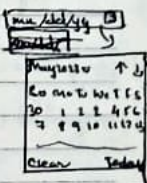 mm/dd/yy
Su Mo Tu We T F S
30 1 2 3 4 5 6
7 8 9 10 11 12 13
Clear Today